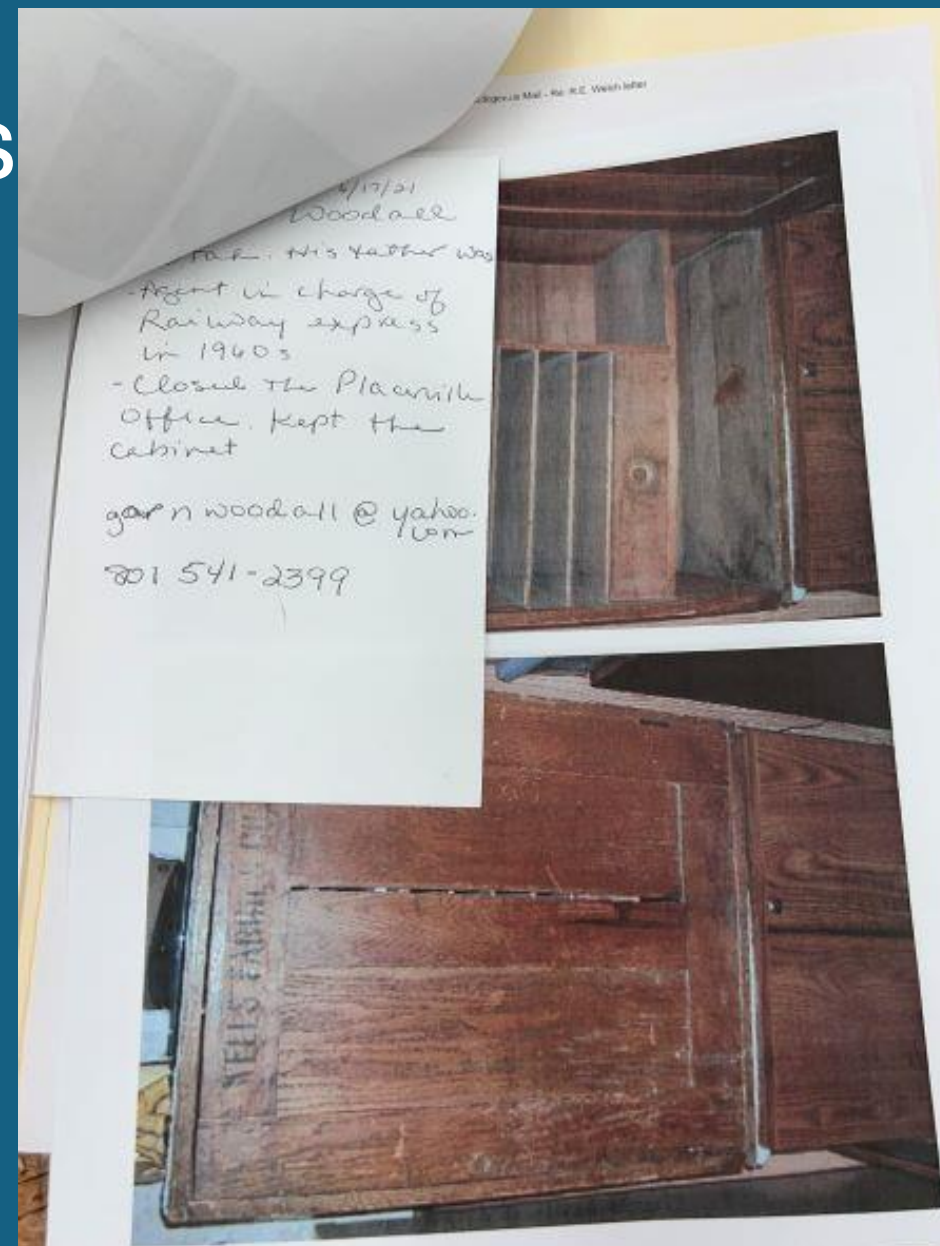 S
Mail - Re: R.E. Welch letter
6/17/21
Woodall
His father was
-Agent in charge of
Railway express
in 1940s
-Closed the Placerville
Office. Kept the
cabinet
garn woodall @ yahoo.
com
801 541-2399
WELLS FARGO &